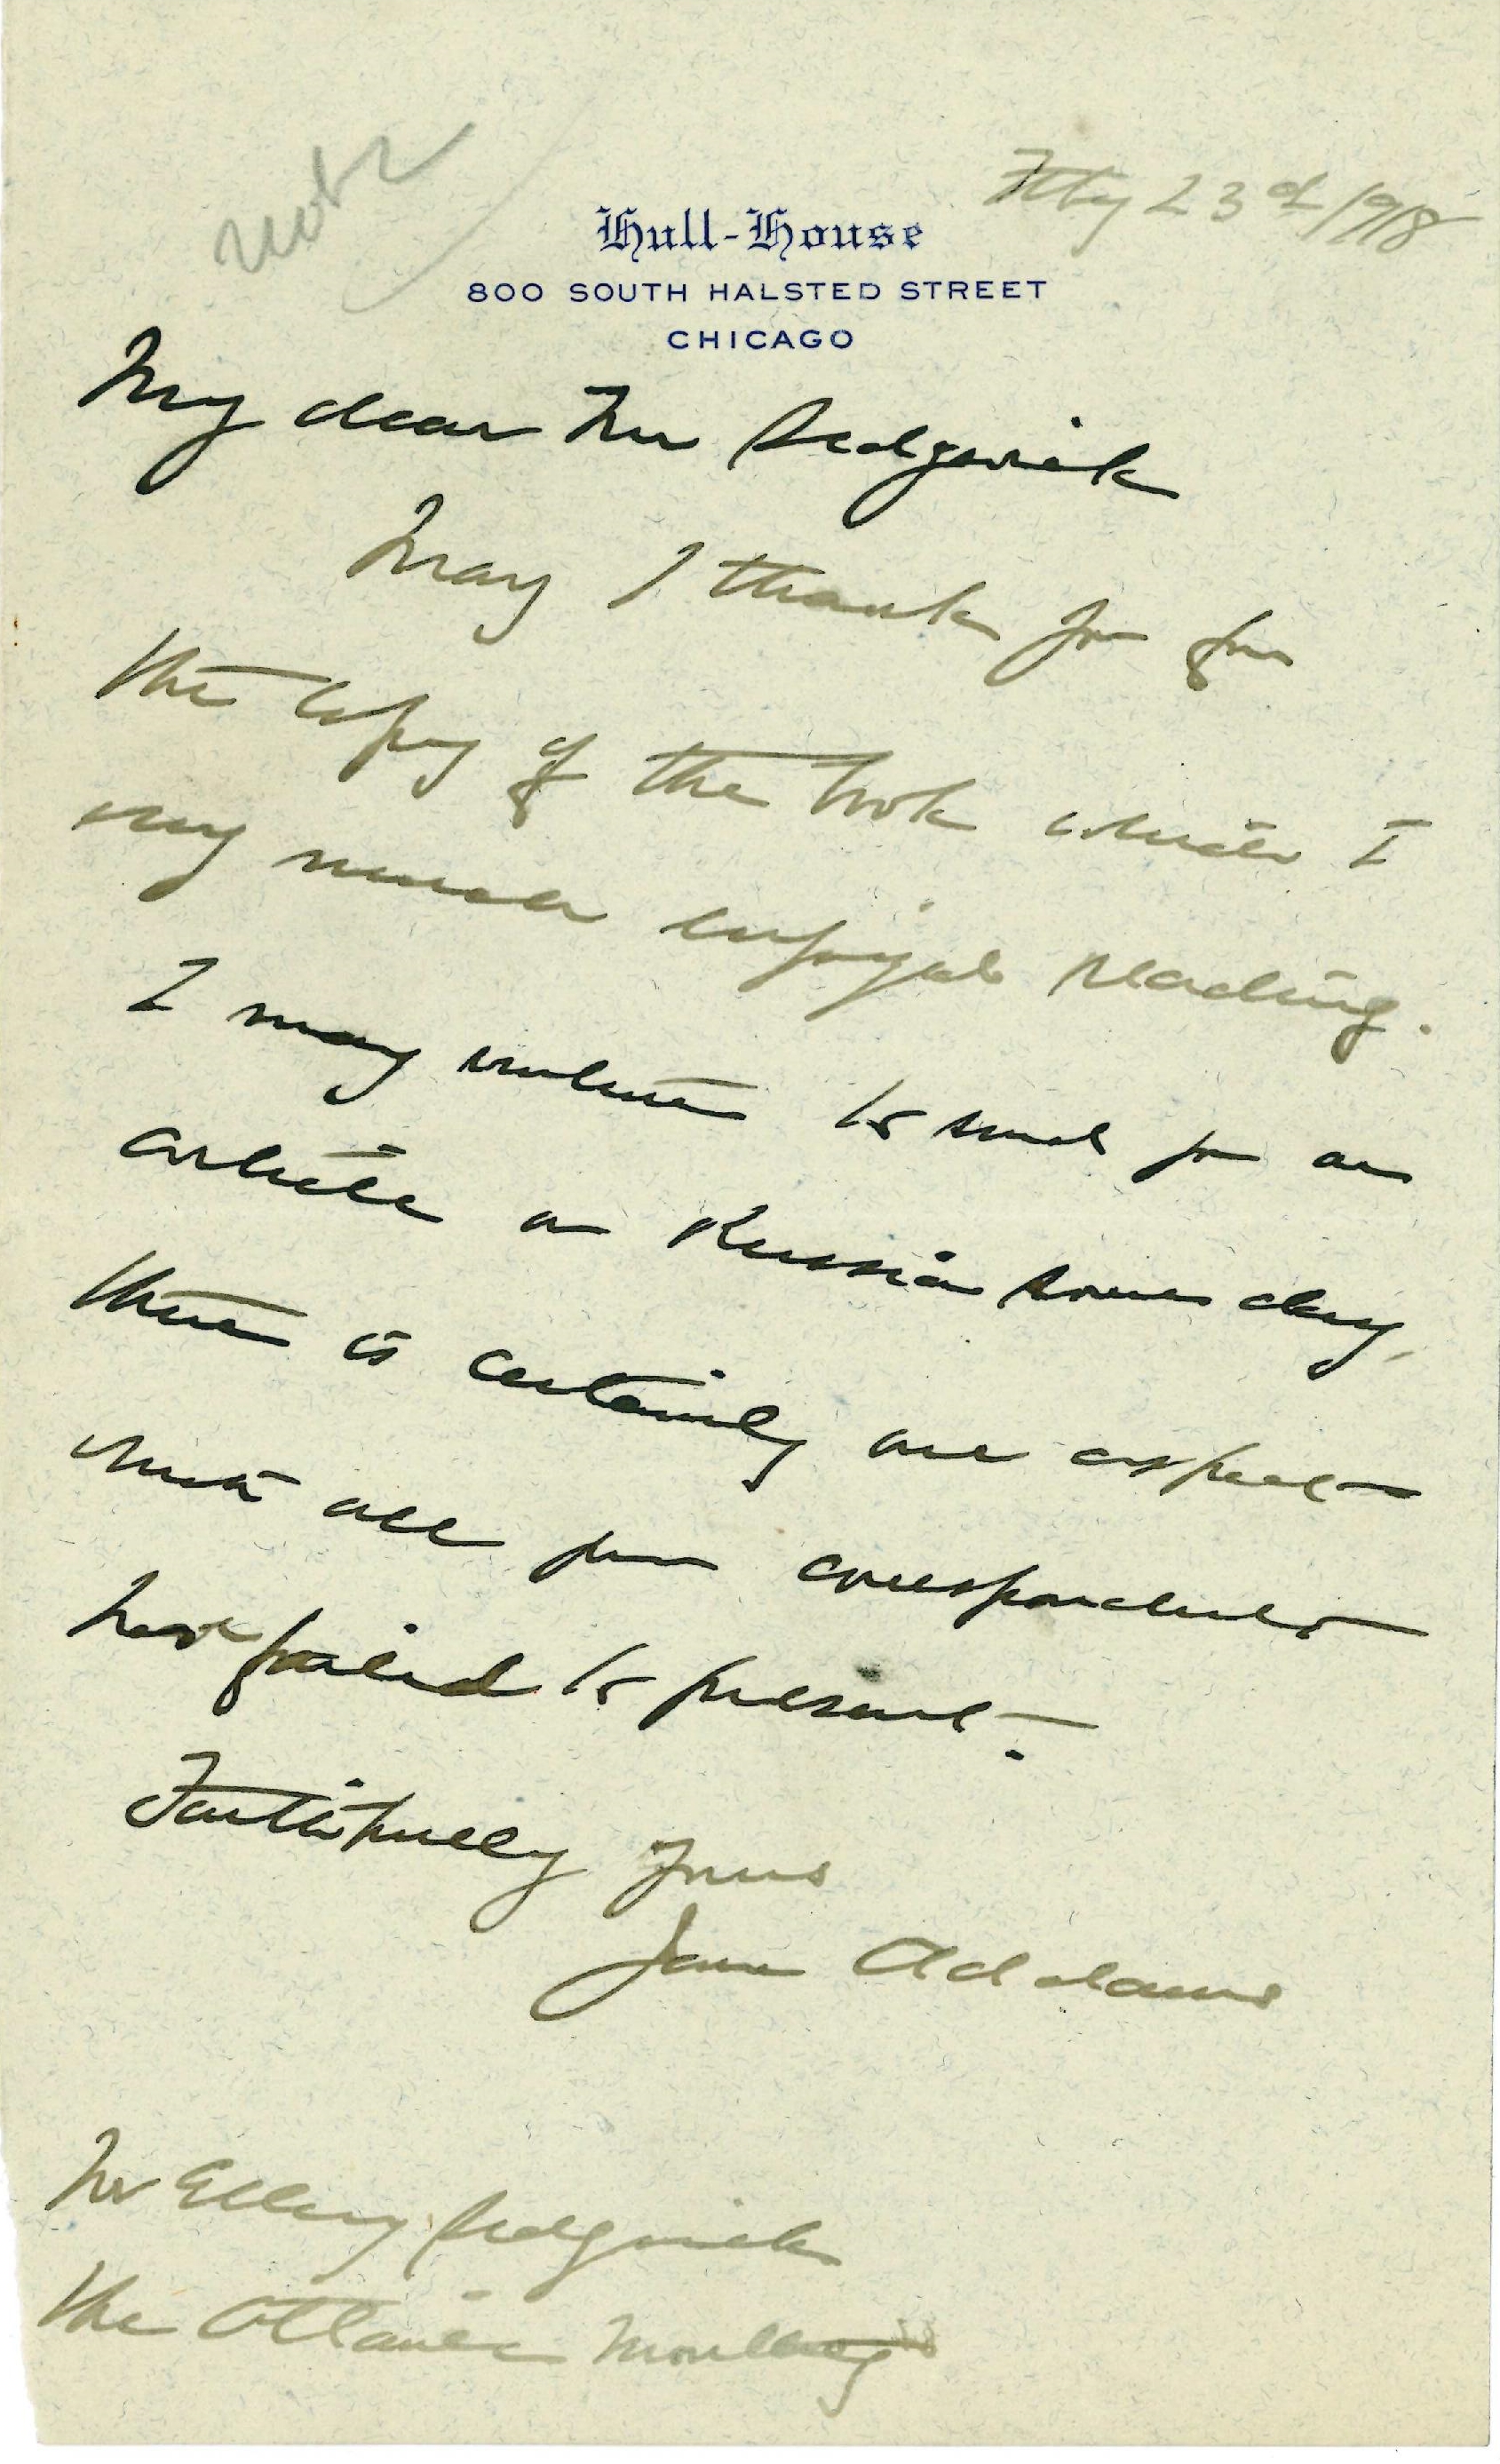 Feby 23d 1918
Hull-House
800 SOUTH HALSTED STREET
CHICAGO
My dear Mr Sedgwick
May I thank you for
the copy of the book which I
very much enjoyed reading.
I may venture to send you an
article on Russia some day,
there is certainly one aspect
which all your correspondents
have failed to present.
Faithfully yours
Jane Addams
Mr Ellery Sedgwick
The Atlantic Monthly